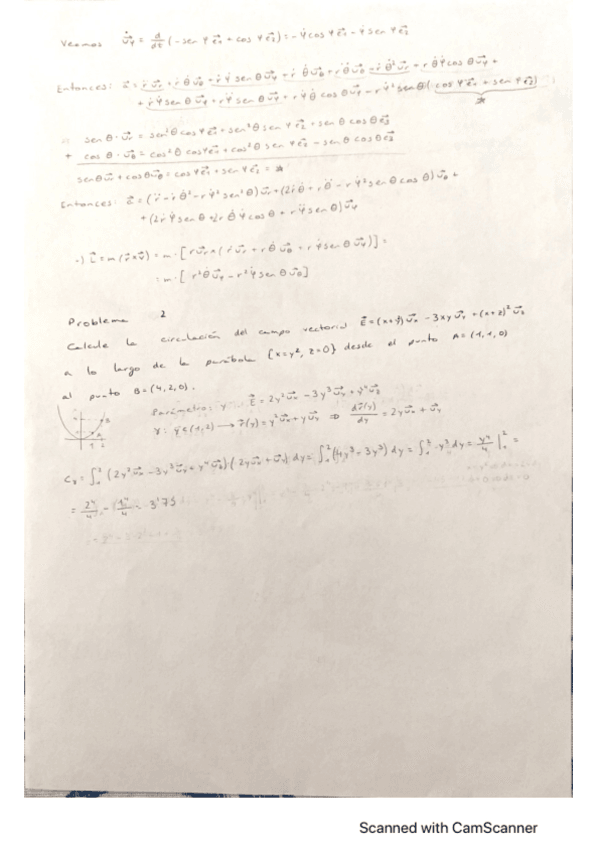 Veamos $\dot{\vec{u}}_\varphi = \frac{d}{dt}(-sen φ \vec{e_1} + cos φ \vec{e_2}) = -\dot{φ} cos φ \vec{e_1} - \dot{φ} sen φ \vec{e_2}$
Entonces: $\vec{a} = \ddot{r} \vec{u_r} + \dot{r} \dot{θ} \vec{u_θ} + \dot{r} \dot{φ} sen θ \vec{u_φ} + \dot{r} \dot{θ} \vec{u_θ} + r \ddot{θ} \vec{u_θ} - r \dot{θ}^2 \vec{u_r} + r \dot{θ} \dot{φ} cos θ \vec{u_φ} +$
$+ \dot{r} \dot{φ} sen θ \vec{u_φ} + r \ddot{φ} sen θ \vec{u_φ} + r \dot{φ} \dot{θ} cos θ \vec{u_φ} - r \dot{φ}^2 sen θ (cos φ \vec{e_1} + sen φ \vec{e_2})$
*
sen θ · $\vec{u_r}$ = sen² θ cos φ $\vec{e_1}$ + sen² θ sen φ $\vec{e_2}$ + sen θ cos θ $\vec{e_3}$
+ cos θ · $\vec{u_θ}$ = cos² θ cos φ $\vec{e_1}$ + cos² θ sen φ $\vec{e_2}$ - sen θ cos θ $\vec{e_3}$
sen θ $\vec{u_r}$ + cos θ $\vec{u_θ}$ = cos φ $\vec{e_1}$ + sen φ $\vec{e_2}$ = *
Entonces: $\vec{a} = (\ddot{r} - r \dot{θ}^2 - r \dot{φ}^2 sen^2 θ) \vec{u_r} + (2 \dot{r} \dot{θ} + r \ddot{θ} - r \dot{φ}^2 sen θ cos θ) \vec{u_θ} +$
$+ (2 \dot{r} \dot{φ} sen θ + 2r \dot{θ} \dot{φ} cos θ + r \ddot{φ} sen θ) \vec{u_φ}$
·) $\vec{L} = m(\vec{r} × \vec{v}) = m · [r \vec{u_r} × (\dot{r} \vec{u_r} + r \dot{θ} \vec{u_θ} + r \dot{φ} sen θ \vec{u_φ})] =$
$= m · [r^2 \dot{θ} \vec{u_φ} - r^2 \dot{φ} sen θ \vec{u_θ}]$
Problema 2
Calcule la circulación del campo vectorial $\vec{E} = (x + y^2) \vec{u_x} - 3xy \vec{u_y} + (x+z)^2 \vec{u_z}$
a lo largo de la parábola {x=y², z=0} desde el punto A=(1,1,0)
al punto B=(4,2,0).
Parámetro: y $\vec{E} = 2y^2 \vec{u_x} - 3y^3 \vec{u_y} + y^4 \vec{u_z}$
γ: y∈(1,2) ⟶ $\vec{r}(y) = y^2 \vec{u_x} + y \vec{u_y}$ ⇒ $\frac{d\vec{r}(y)}{dy} = 2y \vec{u_x} + \vec{u_y}$
$C_γ = \int_1^2 (2y^2 \vec{u_x} - 3y^3 \vec{u_y} + y^4 \vec{u_z})(2y \vec{u_x} + \vec{u_y}) dy = \int_1^2 (4y^3 - 3y^3) dy = \int_1^2 y^3 dy = \frac{y^4}{4} |_1^2 =$
$= \frac{2^4}{4} - \frac{1^4}{4} = 3'75$
Scanned with CamScanner